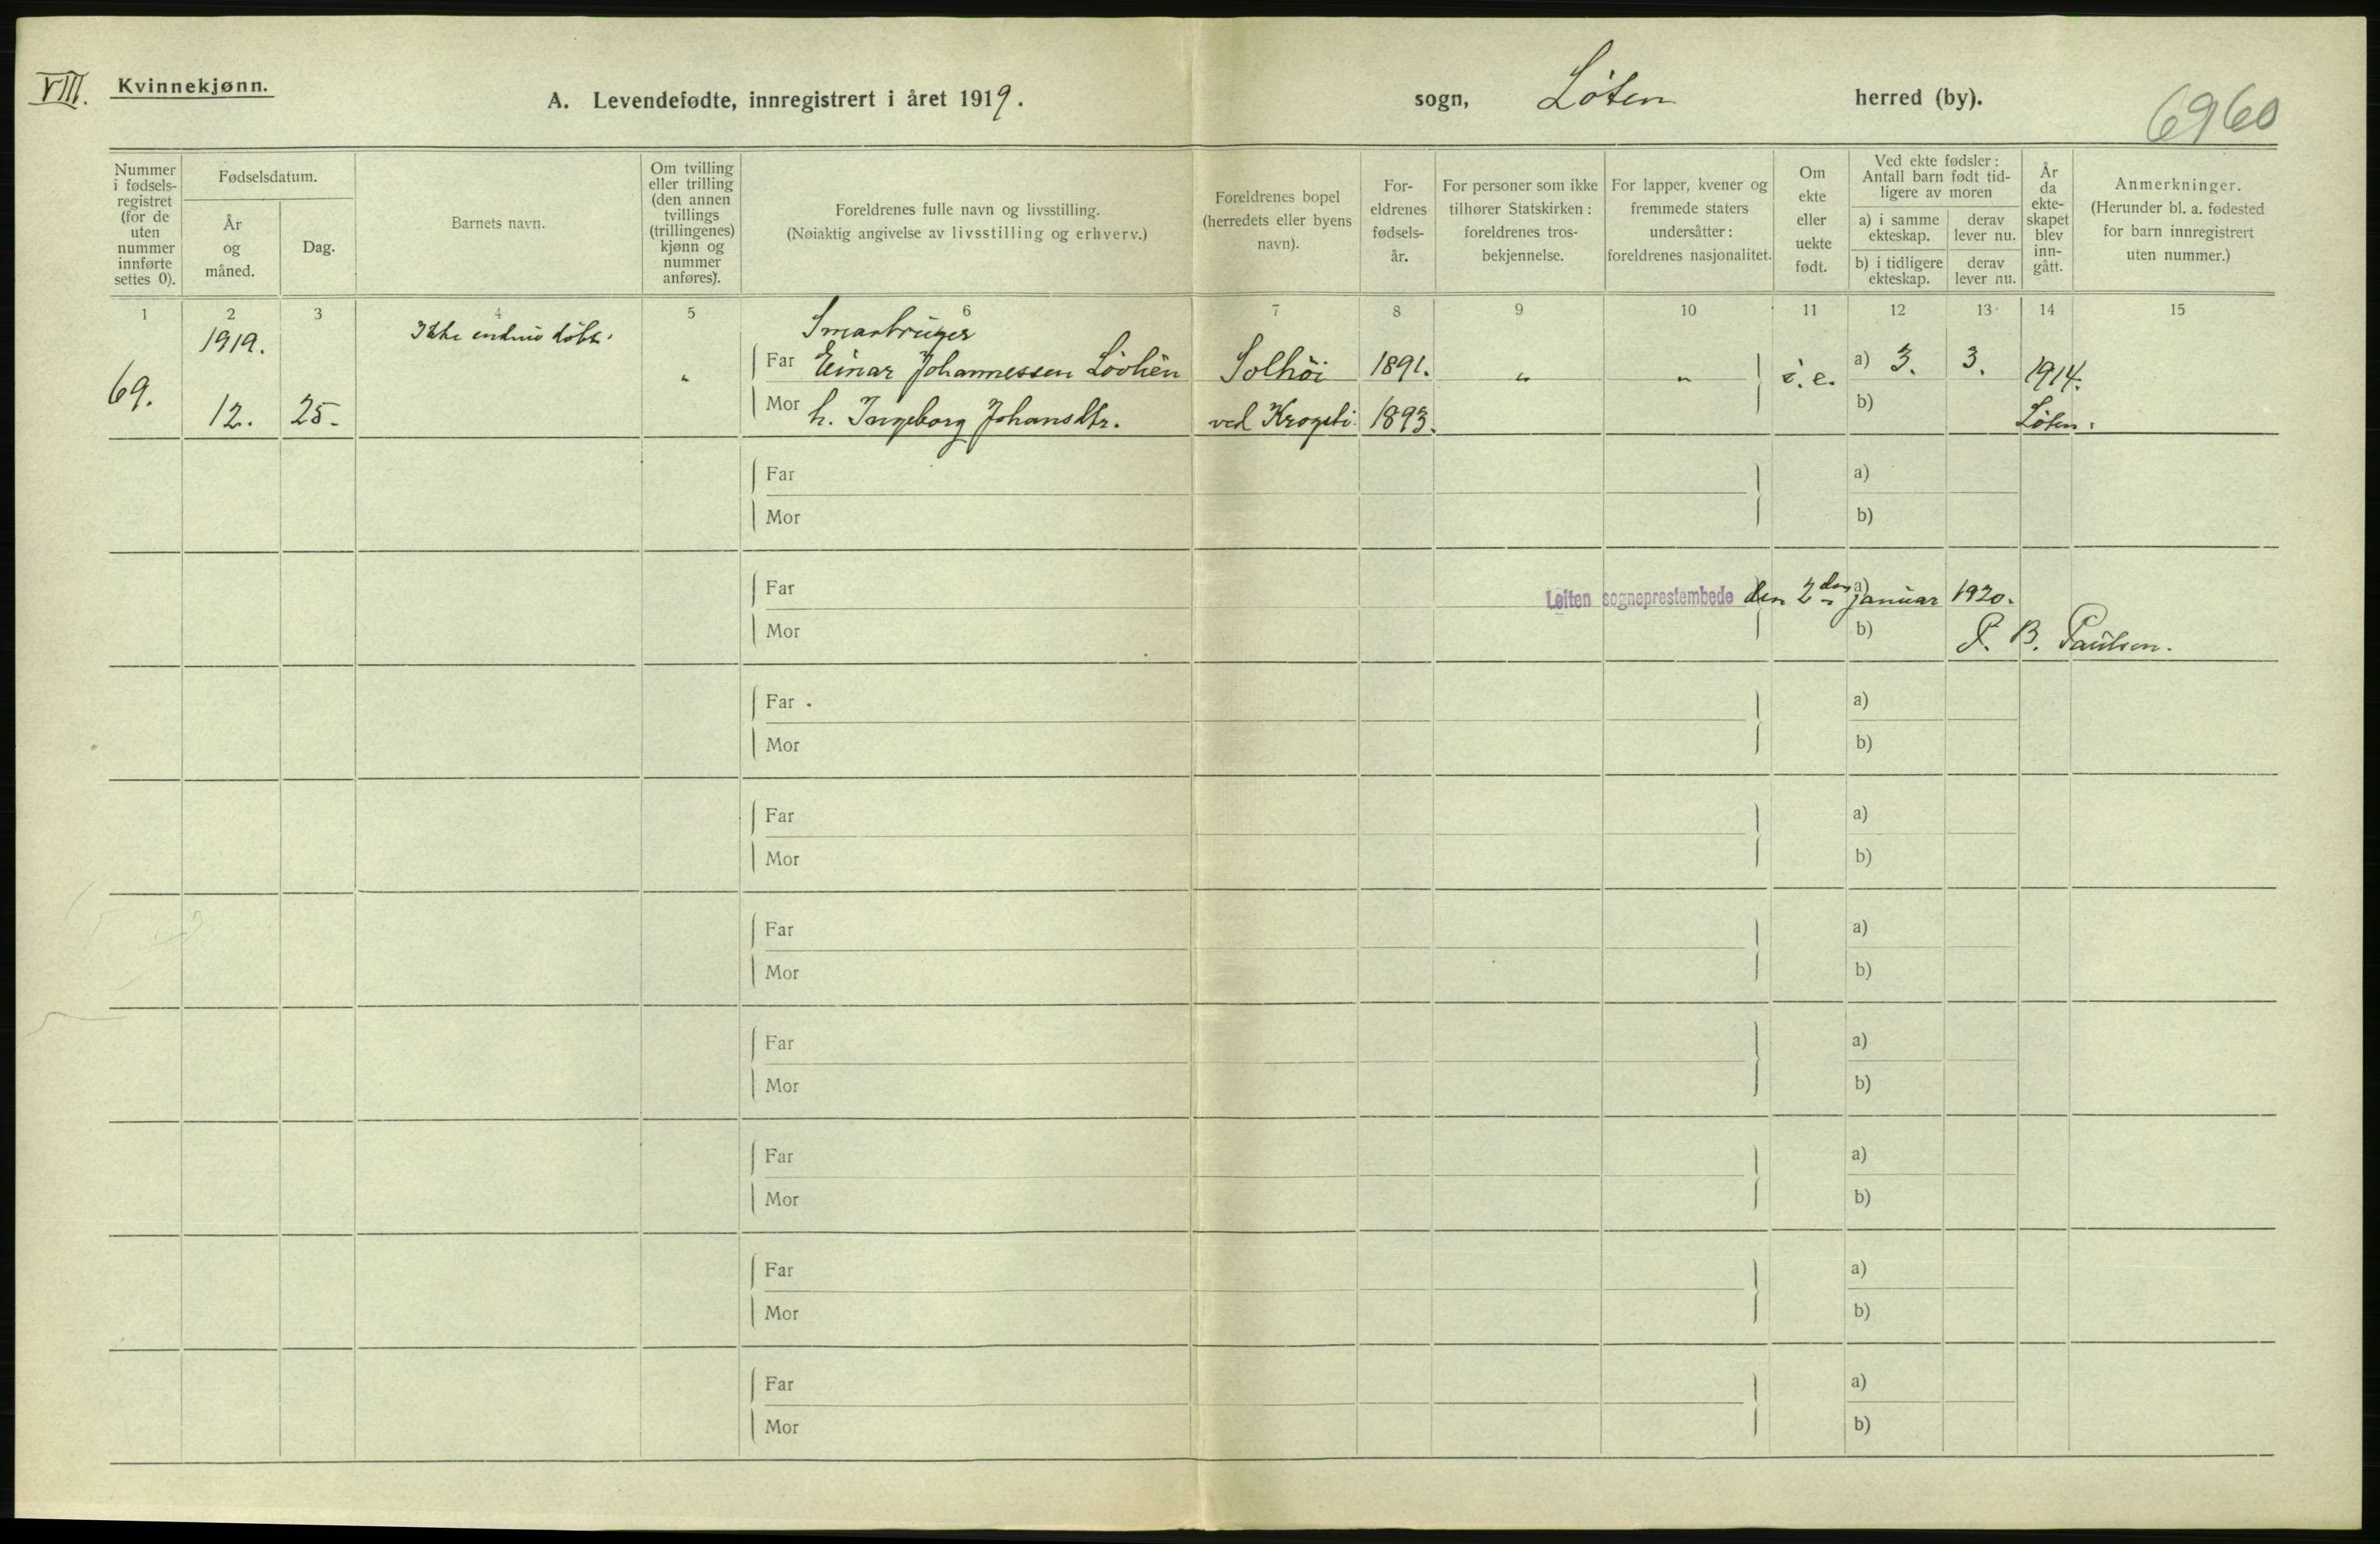 VIII. Kvinnekjønn.
A. Levendefødte, innregistrert i året 1919.
sogn, Löten herred (by).
6960
Nummer i fødsels-registret (for de uten nummer innførte settes 0).
Fødselsdatum.
År og måned.
Dag.
Barnets navn.
Om tvilling eller trilling (den annen tvillings (trillingenes) kjønn og nummer anføres).
Foreldrenes fulle navn og livsstilling.
(Nøiaktig angivelse av livsstilling og erhverv.)
Foreldrenes bopel (herredets eller byens navn).
For-eldrenes fødsels-år.
For personer som ikke tilhører Statskirken: foreldrenes tros-bekjennelse.
For lapper, kvener og fremmede staters undersåtter: foreldrenes nasjonalitet.
Om ekte eller uekte født.
Ved ekte fødsler: Antall barn født tid-ligere av moren
a) i samme ekteskap.
derav lever nu.
b) i tidligere ekteskap.
derav lever nu.
År da ekte-skapet blev inn-gått.
Anmerkninger.
(Herunder bl. a. fødested for barn innregistrert uten nummer.)
1 2 3 4 5 6 7 8 9 10 11 12 13 14 15
1919. Ikke endnu döbt. Smaabruger
69. „ Far Einar Johannessen Lövlien Solhöi 1891. „ „ i. e. a) 3. 3. 1914.
12. 25. Mor h. Ingeborg Johansdtr. ved Krogsti 1893. b) Löten.
Far a)
Mor b)
Far Løiten sogneprestembede den 2den a) januar 1920.
Mor b) P. B. Paulsen.
Far a)
Mor b)
Far a)
Mor b)
Far a)
Mor b)
Far a)
Mor b)
Far a)
Mor b)
Far a)
Mor b)
Far a)
Mor b)